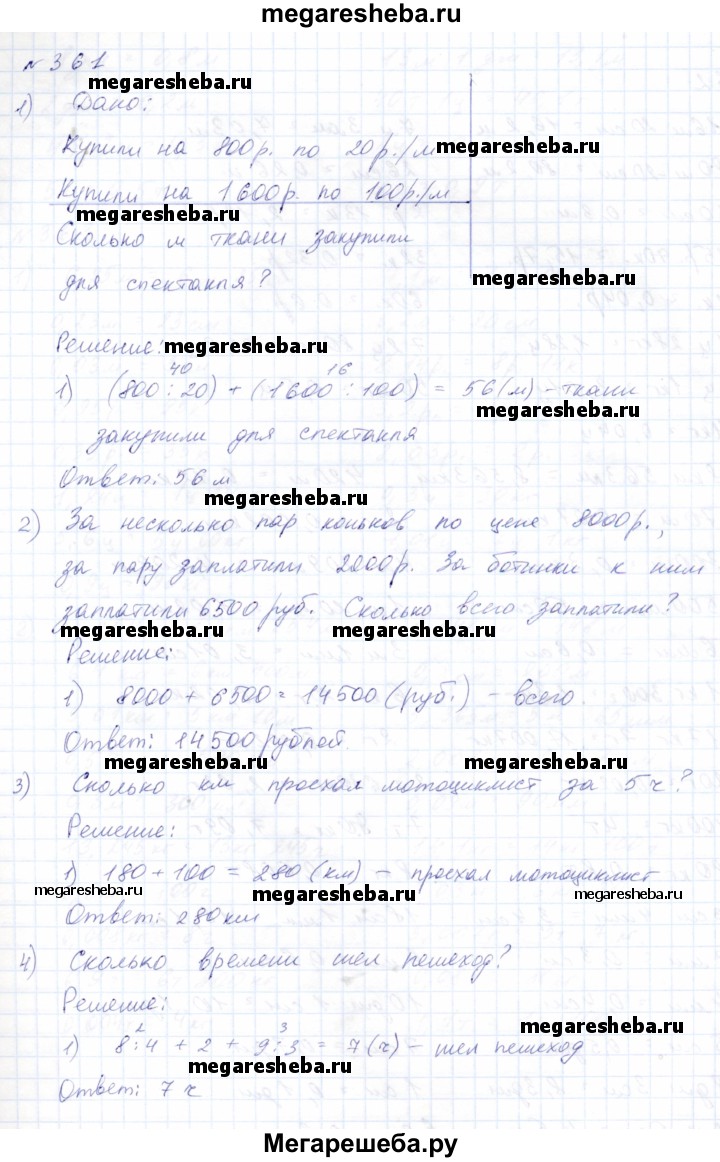 megaresheba.ru
№ 361
megaresheba.ru
1) Дано:
Купили на 800р. по 20р./м
megaresheba.ru
Купили на 1600р. по 100р./м
megaresheba.ru
Сколько м ткани закупили
megaresheba.ru
для спектакля?
Решение:
megaresheba.ru
40 16
1) (800 : 20) + (1600 : 100) = 56 (м) - ткани
megaresheba.ru
закупили для спектакля
Ответ: 56 м
megaresheba.ru
2) За несколько пар коньков по цене 8000р.,
за пару заплатили 2000р. За ботинки к ним
заплатили 6500 руб. Сколько всего заплатили?
megaresheba.ru megaresheba.ru
Решение:
1) 8000 + 6500 = 14500 (руб.) - всего.
Ответ: 14500 рублей.
megaresheba.ru megaresheba.ru
3) Сколько км проехал мотоциклист за 5 ч?
Решение:
1) 180 + 100 = 280 (км) - проехал мотоциклист
megaresheba.ru megaresheba.ru megaresheba.ru
Ответ: 280 км
4) Сколько времени шел пешеход?
Решение:
megaresheba.ru
2 3
1) 8 : 4 + 2 + 9 : 3 = 7 (ч) - шел пешеход
megaresheba.ru
Ответ: 7 ч
Мегарешеба.ру